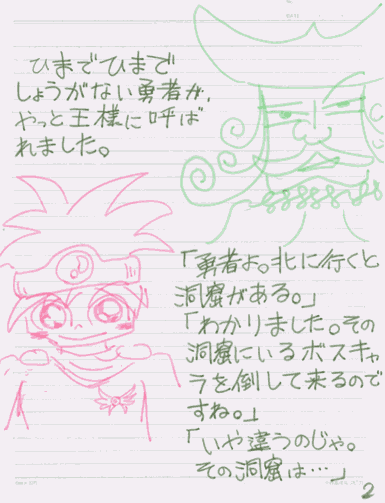 ひまでひまで
しょうがない勇者が、
やっと王様に呼ば
れました。
「勇者よ。北に行くと
洞窟がある。」
「わかりました。その
洞窟にいるボスキャ
ラを倒して来るので
すね。」
「いや違うのじゃ。
その洞窟は…」
2